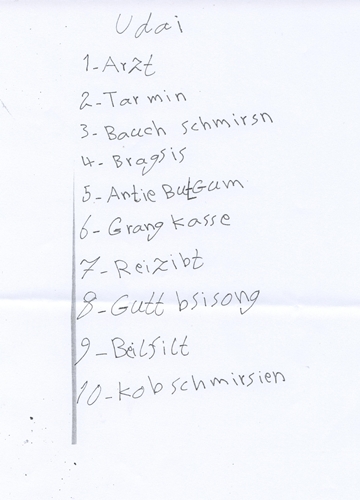 Udai
1-Arzt
2-Tarmin
3-Bauch schmirsn
4-Bragsis
5-Antie ButGum
6-Grang kasse
7-Reizibt
8-Gutt bsisong
9-Beilfilt
10-kobschmirsien